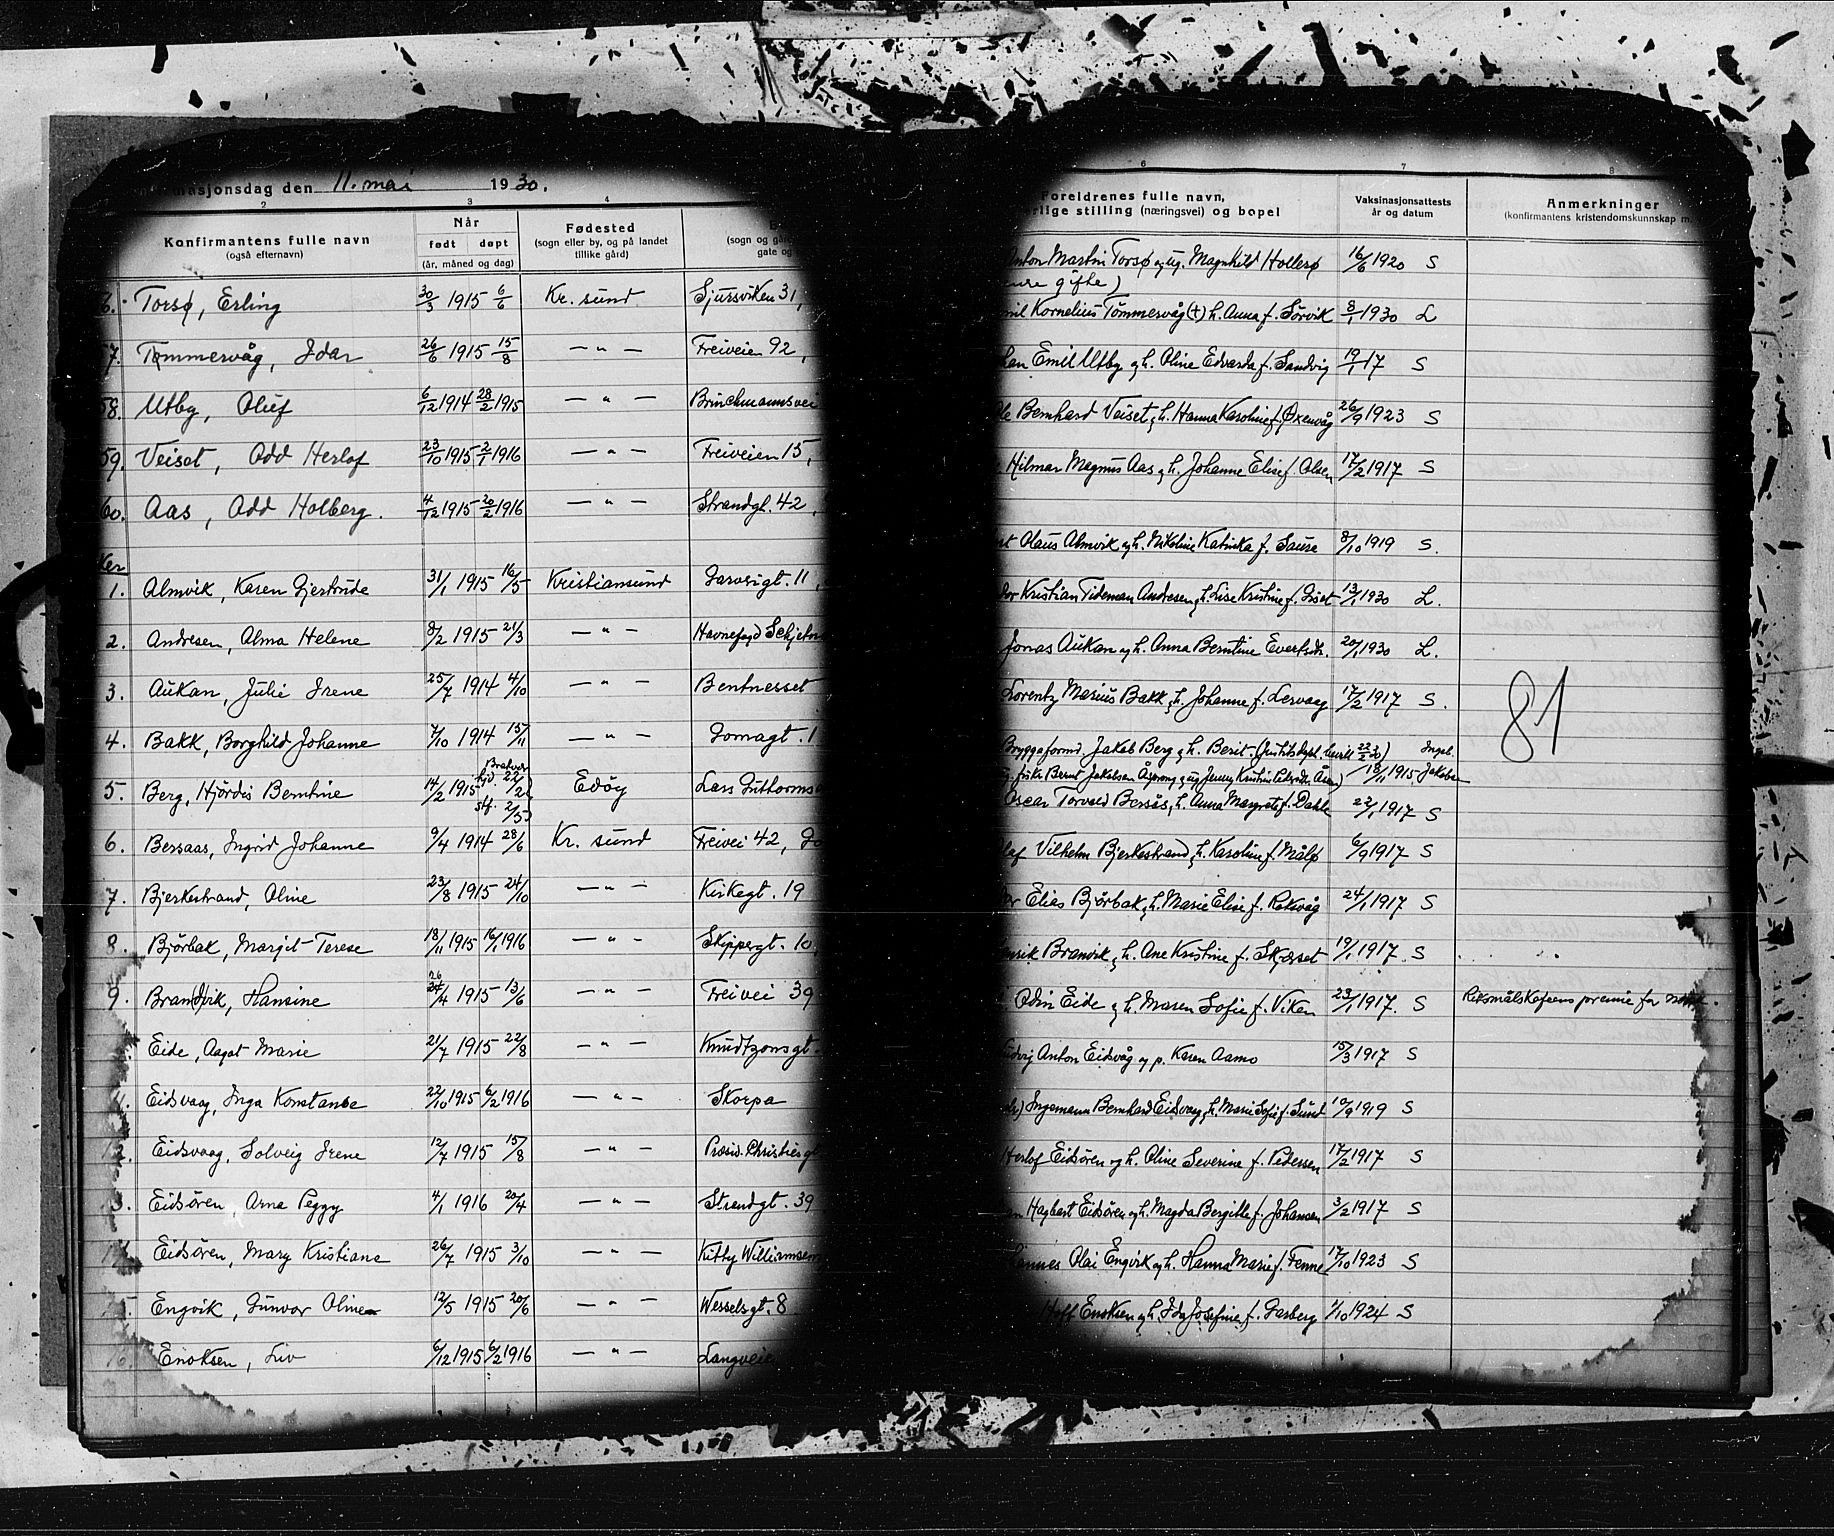 asjonsdag den 11. mai 1930.
2 3 4
Konfirmantens fulle navn
(også efternavn)
Når
født døpt
(år, måned og dag)
Fødested
(sogn eller by, og på landet
tillike gård)
(sogn og gård
gate og
6. Torsø, Erling 30/3 1915 6/6 Kr. sund Sjursviken 31,
57. Tømmervåg, Idar 26/6 1915 15/8 — " — Freiveien 92,
58. Utby, Oluf 6/12 1914 28/2 1915 — " — Brinchmannsvei
59. Veiset, Odd Herlof 23/10 1915 2/1 1916 — " — Freiveien 15,
60. Aas, Odd Holberg. 4/12 1915 20/2 1916 — " — Strandgt. 42,
ker
1. Almvik, Karen Gjertrude 31/1 1915 16/5 Kristiansund Garverigt. 11,
2. Andresen, Alma Helene 8/2 1915 21/3 — " — Havnefogd Schjelm
3. Aukan, Julie Irene 25/7 1914 4/10 — " — Bentnesset
4. Bakk, Borghild Johanne 7/10 1914 15/11 — " — Gomagt. 1
5. Berg, Hjördis Berntine 14/2 1915 hjd. 22/2 stf. 2/5 Edöy Lars Guttorms
6. Bersaas, Ingrid Johanne 9/4 1914 28/6 Kr. sund Freivei 42, Go
7. Bjerkestrand, Oline 23/8 1915 24/10 — " — Kirkegt. 19
8. Bjørbak, Margit Terese 18/11 1915 16/1 1916 — " — Skippergt. 10,
9. Bran(d)vik, Hansine 26/4 1915 13/6 — " — Freivei 39
Eide, Aagot Marie 21/7 1915 22/8 — " — Knudtzonsgt.
Eidsvaag, Inga Konstanse 22/10 1915 6/2 1916 — " — Skorpa
12. Eidsvaag, Solveig Irene 12/7 1915 15/8 — " — Presid. Christiesgt
3. Eidsøren, Arna Peggy 4/1 1916 20/4 — " — Strandgt. 39
14. Eidsøren, Mary Kristiane 26/7 1915 3/10 — " — Kitty Williamsen
15. Engvik, Gunvor Oline 12/5 1915 20/6 — " — Wesselsgt. 8
16. Enoksen, Liv 6/12 1915 6/2 1916 — " — Langveien
6 7 8
Foreldrenes fulle navn,
erlige stilling (næringsvei) og bopel
Vaksinasjonsattests
år og datum
Anmerkninger
(konfirmantens kristendomskunnskap m.
Anton Martin Torsø og ug. Magnhild Hollersø 16/6 1920 S
gifte)
mil Kornelius Tömmervåg (+) h. Anna f. Sörvik 8/1 1930 L
han Emil Utby og h. Oline Edvarda f. Sandvig 19/1 17 S
le Bernhard Veiset, h. Hanna Karoline f. Oxenvåg 26/9 1923 S
Hilmar Magnus Aas, h. Johanne Elise f. Olsen 17/2 1917 S
nt Olaus Almvik og h. Nikoline Katinka f. Saure 8/10 1919 S.
or Kristian Tideman Andresen, h. Lise Kristine f. Giset 13/1 1930 L.
Jonas Aukan og h. Anna Berntine Evertsdr. 20/1 1930 L.
Lorentz Marius Bakk, h. Johanne f. Lervaag 17/2 1917 S.
81
Bryggeformd. Jakob Berg, h. Berit
f. fiske Bernt Jakobsen 18/11 1915 Jakobsen
Oscar Torvald Bersås, h. Anna Margrete f. Dahle 22/1 1917 S
laf Vilhelm Bjerkestrand, h. Karoline f. Målø 6/9 1917 S
or Elias Bjørbak, h. Marie Elise f. Rokvåg 24/1 1917 S
enrik Branvik, h. Ane Kristine f. Skjøset 19/1 1917. S
Odin Eide og h. Maren Sofie f. Viken 23/1 1917. S Riksmålskafeens premie for norsk.
udvig Anton Eidsvåg og p. Karen Aamo 15/3 1917 S
Ingemann Bernhard Eidsvaag, h. Marie Sofie f. Sund 10/9 1919 S
Herlof Eidsøren og h. Oline Severine f. Pedersen 17/2 1917 S
an Hagbart Eidsøren og h. Magda Bergitte f. Johansen 3/2 1917 S
annes Olai Engvik og h. Hanna Marie f. Fenne 17/10 1923 S
Hoff Enoksen og h. Ida Josefine f. Garberg 1/10 1924 S